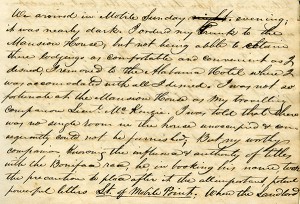 We arrived in Mobile Sunday evening;
it was nearly dark. I ordered my trunk to the
Mansion House, but not being able to obtain
there lodgings as comfortable and convenient as I
desired, I removed to the Alabama Hotel where I
was accomodated with all I desired. I was not so
fortunate at the Mansion House as my travelling
companion Lieut McKenzie. I was told that there
was no single room in the house unoccupied & con
sequently could not be furnished, But my worthy
companion knowing the influence & authority of titles
with the Bonifaces race he in booking his name took
the precaution to place after it the all important and
powerful letters Lt. of Mobile Point; When the Landlord